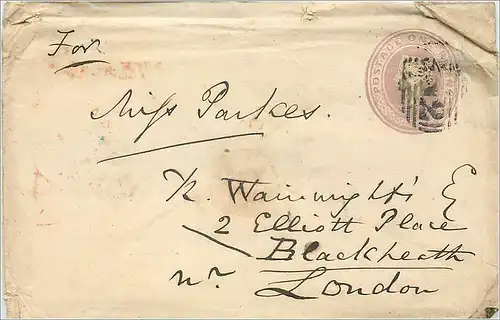 For
POSTAGE ONE
Miss Parkes.
R. Wainwright's E
2 Elliott Place
Blackheath
nr. London